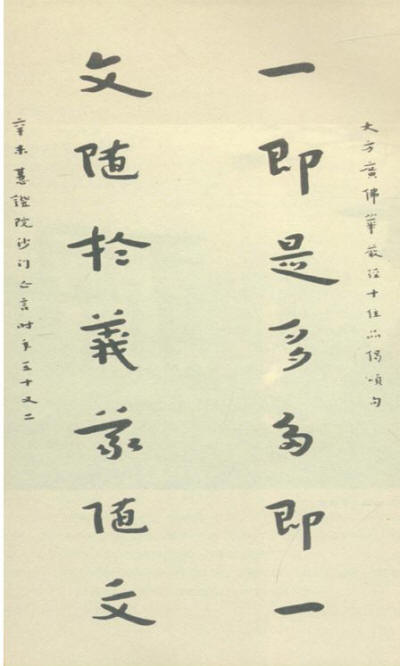 大方廣佛華嚴經十住品偈頌句
一即是多多即一
文随於義義随文
辛未慧證院沙门亡言時年五十又二